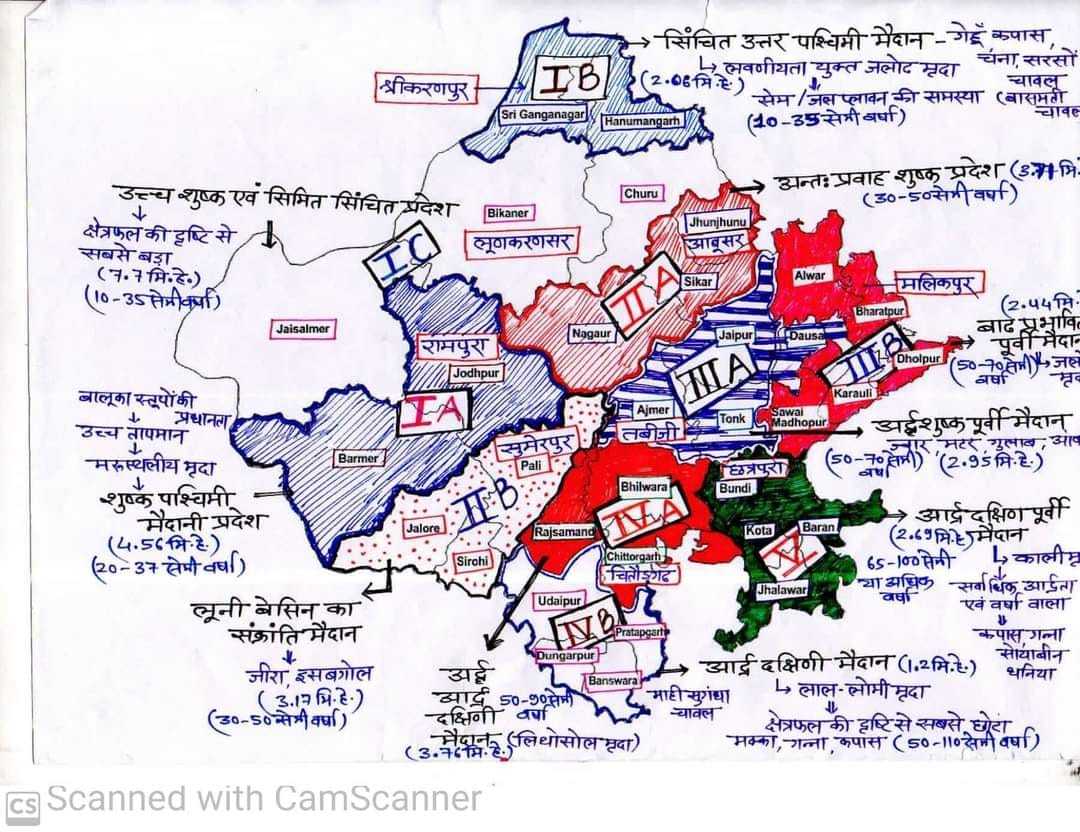 सिंचित उत्तर पश्चिमी मैदान - गेहूँ कपास,
चना, सरसों
चावल
लवणीयता युक्त जलोढ मृदा
(2.06 मि.हे.)
सेम / जल प्लावन की समस्या (बासमती
चावल
(10-35 सेमी वर्षा)
श्रीकरणपुर
IB
Sri Ganganagar
Hanumangarh
अन्तः प्रवाह शुष्क प्रदेश
(30-50 सेमी वर्षा)
उच्च शुष्क एवं सिमित सिंचित प्रदेश
क्षेत्रफल की दृष्टि से
सबसे बड़ा
(7.7 मि.हे.)
(10-35 सेमी वर्षा)
IC
Bikaner
लूणकरणसर
Churu
Jhunjhunu
आबूसर
IIA
Sikar
Nagaur
Jaisalmer
रामपुरा
Jodhpur
IA
Barmer
Alwar
मलिकपुर
Bharatpur
(2.44 मि.
बाढ प्रभावि
पूर्वी मैदान
(50-70 सेमी)
वर्षा
Jaipur
Dausa
IIIB
Dholpur
Karauli
IIIA
Ajmer
तबीजी
Tonk
Sawai
Madhopur
बालूका स्तूपों की
प्रधानता
उच्च तापमान
मरुस्थलीय मृदा
शुष्क पश्चिमी
मैदानी प्रदेश
(4.56 मि.हे.)
(20-37 सेमी वर्षा)
अर्द्धशुष्क पूर्वी मैदान
ज्वार, मटर, गुलाब,
(50-70 सेमी) (2.95 मि.हे.)
वर्षा
सुमेरपुर
Pali
IIB
Jalore
Sirohi
Bhilwara
IVA
Rajsamand
Chittorgarh
चित्तौड़गढ
छत्रपुरा
Bundi
Kota
Baran
V
Jhalawar
आर्द्र दक्षिण पूर्वी
(2.69 मि.हे.) मैदान
65-100 सेमी
या अधिक
वर्षा
सर्वाधिक आर्द्रता
एवं वर्षा वाला
कपास, गन्ना
सोयाबीन
धनिया
लूनी बेसिन का
संक्रांति मैदान
जीरा, इसबगोल
(30-50 सेमी वर्षा)
Udaipur
IVB
Pratapgarh
Dungarpur
Banswara
अर्द्ध
आर्द्र
दक्षिणी
मैदान
50-90 सेमी
वर्षा
(लिथोसोल मृदा)
(3.76 मि.हे.)
माही सुगंधा
चावल
आर्द्र दक्षिणी मैदान (1.2 मि.हे.)
लाल-लोमी मृदा
क्षेत्रफल की दृष्टि से सबसे छोटा
मक्का, गन्ना, कपास (50-110 सेमी वर्षा)
CS Scanned with CamScanner